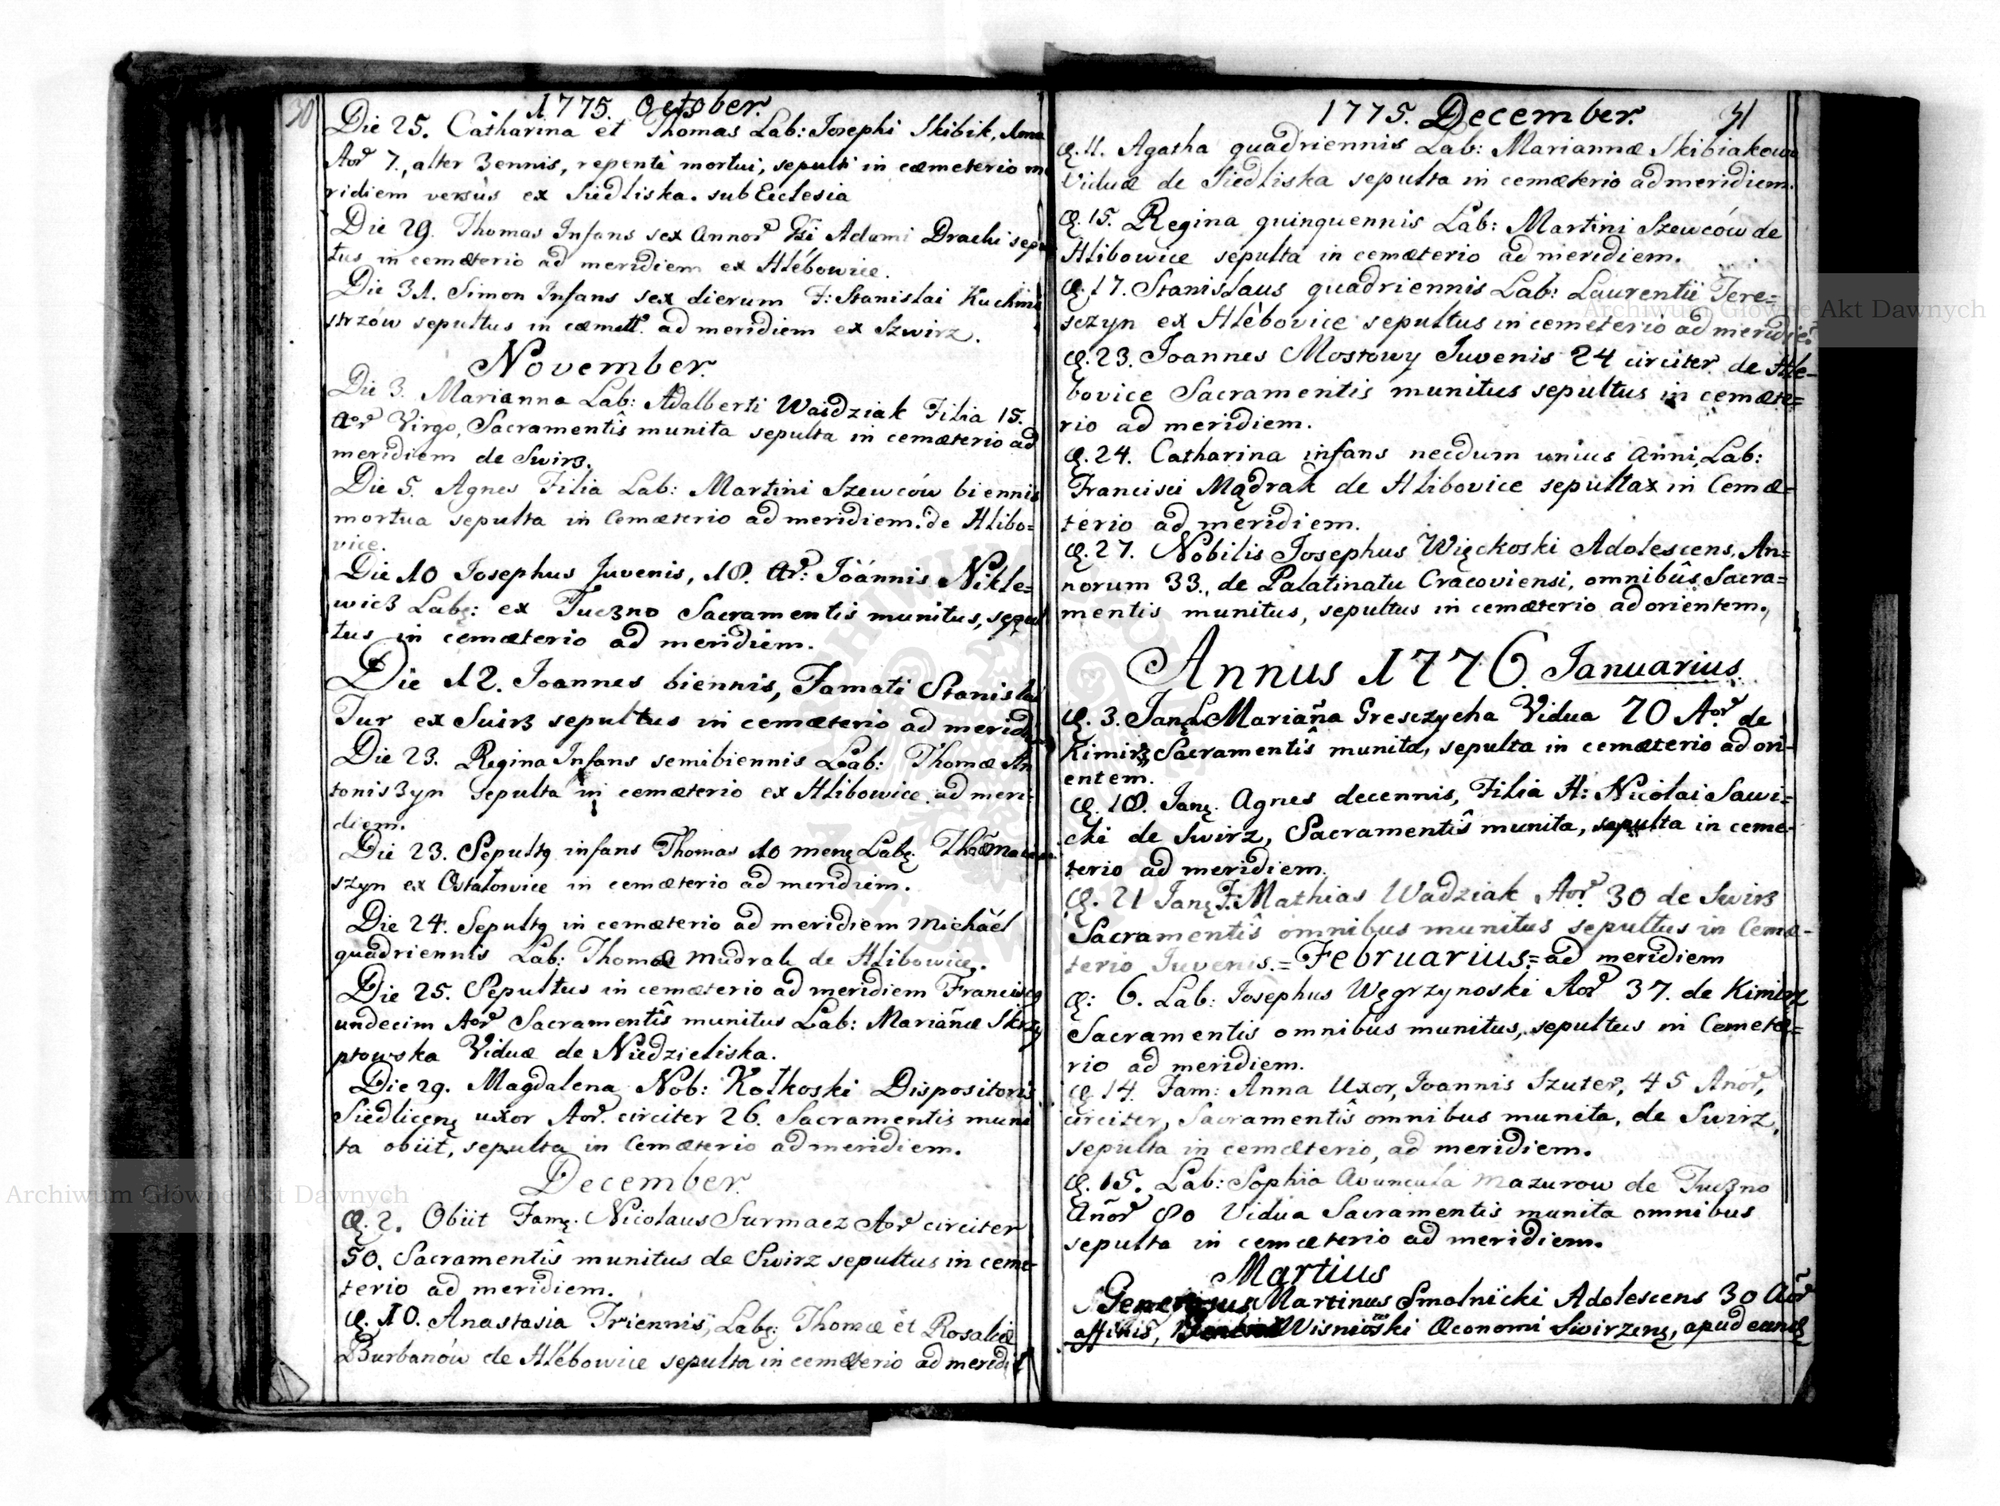 30
1775. October.
Die 25. Catharina et Thomas Lab: Josephi Skibik, Anna
Aor 7., alter 3ennis, repente mortui, sepulti in cæmeterio me
ridiem versus ex Siedliska. sub Ecclesia
Die 29. Thomas Infans sex Annor Adami Drachi sepul
tus in cemæterio ad meridiem ex Hlébowice.
Die 31. Simon Infans sex dierum F: Stanislai Kuchmi
strzów sepultus in cæmett. ad meridiem ex Szwirz.
November.
Die 3. Marianna Lab: Adalberti Waidziak Filia 15.
Aor Virgo, Sacramentîs munita sepulta in cemæterio ad
meridiem de Swirz.
Die 5. Agnes Filia Lab: Martini Szewców biennis
mortua sepulta in Cemæterio ad meridiem. de Hlibo=
vice.
Die 10 Josephus Juvenis, 18. Ar: Joánnis Nikle=
wicz Labę: ex Tuczno Sacramentis munitus, sepul
tus in cemæterio ad meridiem.
Die 12. Joannes biennis, Famati Stanislai
Tur ex Suirz sepultus in cemæterio ad meridi
Die 23. Regina Infans semibiennis Lab: Thomæ An
toniszyn sepulta in cemæterio ex Hlibowice. ad meri=
diem.
Die 23. Sepultq infans Thomas 10 menę Labę.
szyn ex Ostalowice in cemæterio ad meridiem.
Die 24. Sepultq in cemæterio ad meridiem Michaél
quadriennis Lab: Thomæ Mudrak de Hlibowice.
Die 25. Sepultus in cemæterio ad meridiem Franciscq
undecim Aor Sacramentîs munitus Lab: Mariañæ Skrzy
ptowska Viduæ de Niedzieliska.
Die 29. Magdalena Nob: Kotkoski Dispositoris
Siedlicenę uxor Aor. circiter 26. Sacramentis muni
ta obiit, sepulta in Cemæterio ad meridiem.
December.
Q. 2. Obiit Famę. Nicolaus Surmacz Aor circiter
50. Sacramentîs munitus de Swirz sepultus in cemæ
terio ad meridiem.
Q. 10. Anastasia Triennis, Labę: Thomæ et Rosaliæ
Burbanów de Hlébowice sepulta in cemæterio ad meridiē
1775. December. 31
Q. 11. Agatha quadriennis Lab: Mariannæ Skibiakowa
Viduæ de Siedliska sepulta in cemæterio ad meridiem.
Q. 15. Regina quinquennis Lab: Martini Szewców de
Hlibowice sepulta in cemæterio ad meridiem.
Q. 17. Stanislaus quadriennis Lab: Laurentii Tere=
sczyn ex Hlébovice sepultus in cemeterio ad meridiē.
Q. 23. Joannes Mostowy Juvenis 24 circiter de Hle=
bovice Sacramentis munitus sepultus in cemæte=
rio ad meridiem.
Q. 24. Catharina infans necdum unius Anni, Lab:
Francisci Mądrak de Hlibovice sepulta in Cemæ=
terio ad meridiem.
Q. 27. Nobilis Josephus Więckoski Adolescens, An=
norum 33., de Palatinatu Cracoviensi, omnibûs Sacra=
mentis munitus, sepultus in cemæterio ad orientem.
Annus 1776. Januarius.
Q. 3. Janę L Mariaña Gresczycha Vidua 70 Aor de
Kimirz Sacramentîs munita, sepulta in cemæterio ad ori=
entem.
Q. 18. Janę. Agnes decennis, Filia H: Nicolai Sawi=
cki de Swirz, Sacramentîs munita, sepulta in ceme=
terio ad meridiem.
Q. 21 Janę F: Mathias Wadziak Aor. 30 de Swirz
Sacramentîs omnibus munitus sepultus in Cemæ=
terio Juvenis. = Februarius: = ad meridiem
Q: 6. Lab: Josephus Węgrzynoski Aor 37. de Kimirz
Sacramentis omnibus munitus, sepultus in Cemetę=
rio ad meridiem.
Q 14. Fam: Anna Uxor, Joannis Szuter, 45 Anōr,
circiter, Sacramentîs omnibus munita, de Swirz,
sepulta in cemæterio, ad meridiem.
Q. 15. Lab: Sophia Avuncula Mazurow de Tuczno
Añor 80 Vidua Sacramentis munita omnibus
sepulta in cemæterio ad meridiem.
Martius
Generosus Martinus Smolnicki Adolescens 30 Aōr
affinis, Wisnioski Œconomi Swirzenę, apud eundę
Archiwum Główne Akt Dawnych
Archiwum Główne Akt Dawnych